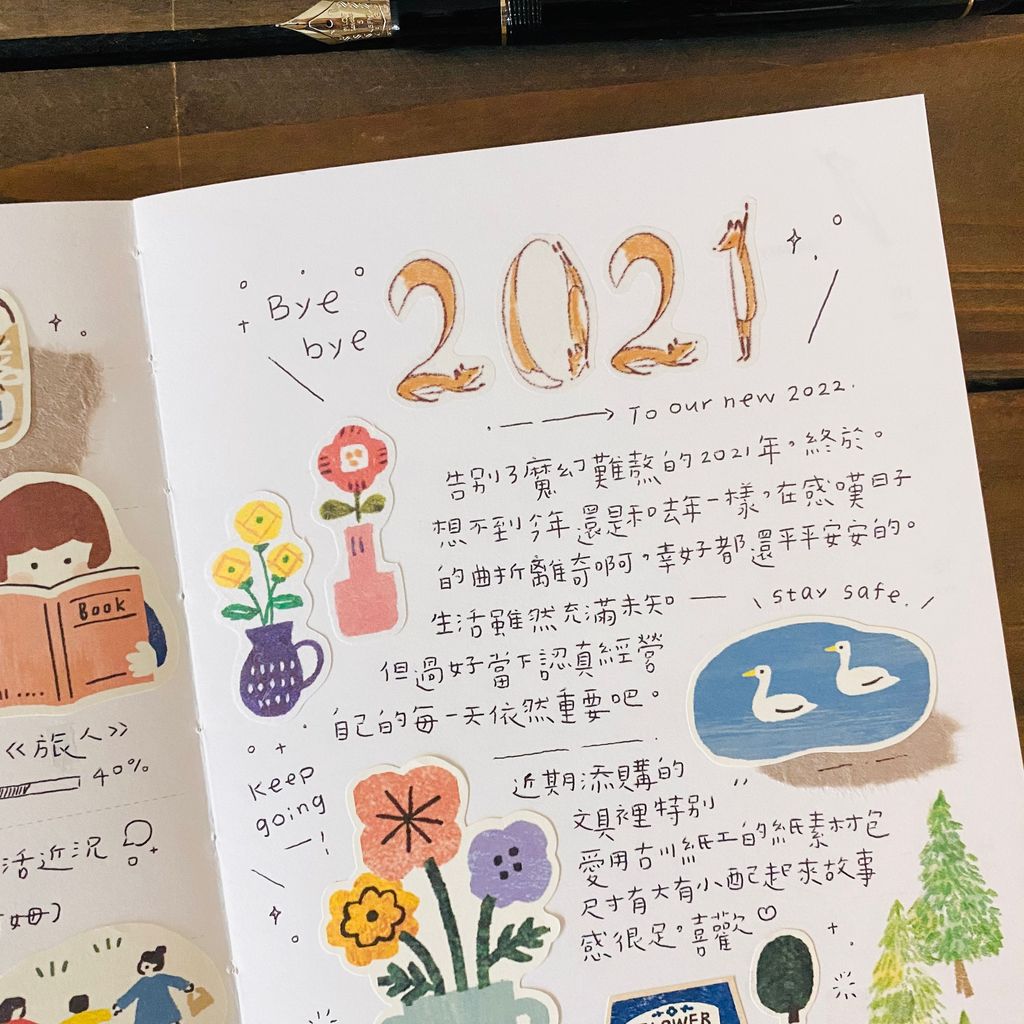 Book
《旅人》
40%
活近況
Bye
bye
2021
To our new 2022.
告別了魔幻難熬的2021年,終於。
想不到今年還是和去年一樣,在感嘆日子
的曲折離奇啊,幸好都還平平安安的。
stay safe.
生活雖然充滿未知
但過好當下認真經營
自己的每一天依然重要吧。
keep
going
!
近期添購的
文具裡特別
愛用古川紙工的紙素材包
尺寸有大有小配起來故事
感很足。喜歡♡
FLOWER